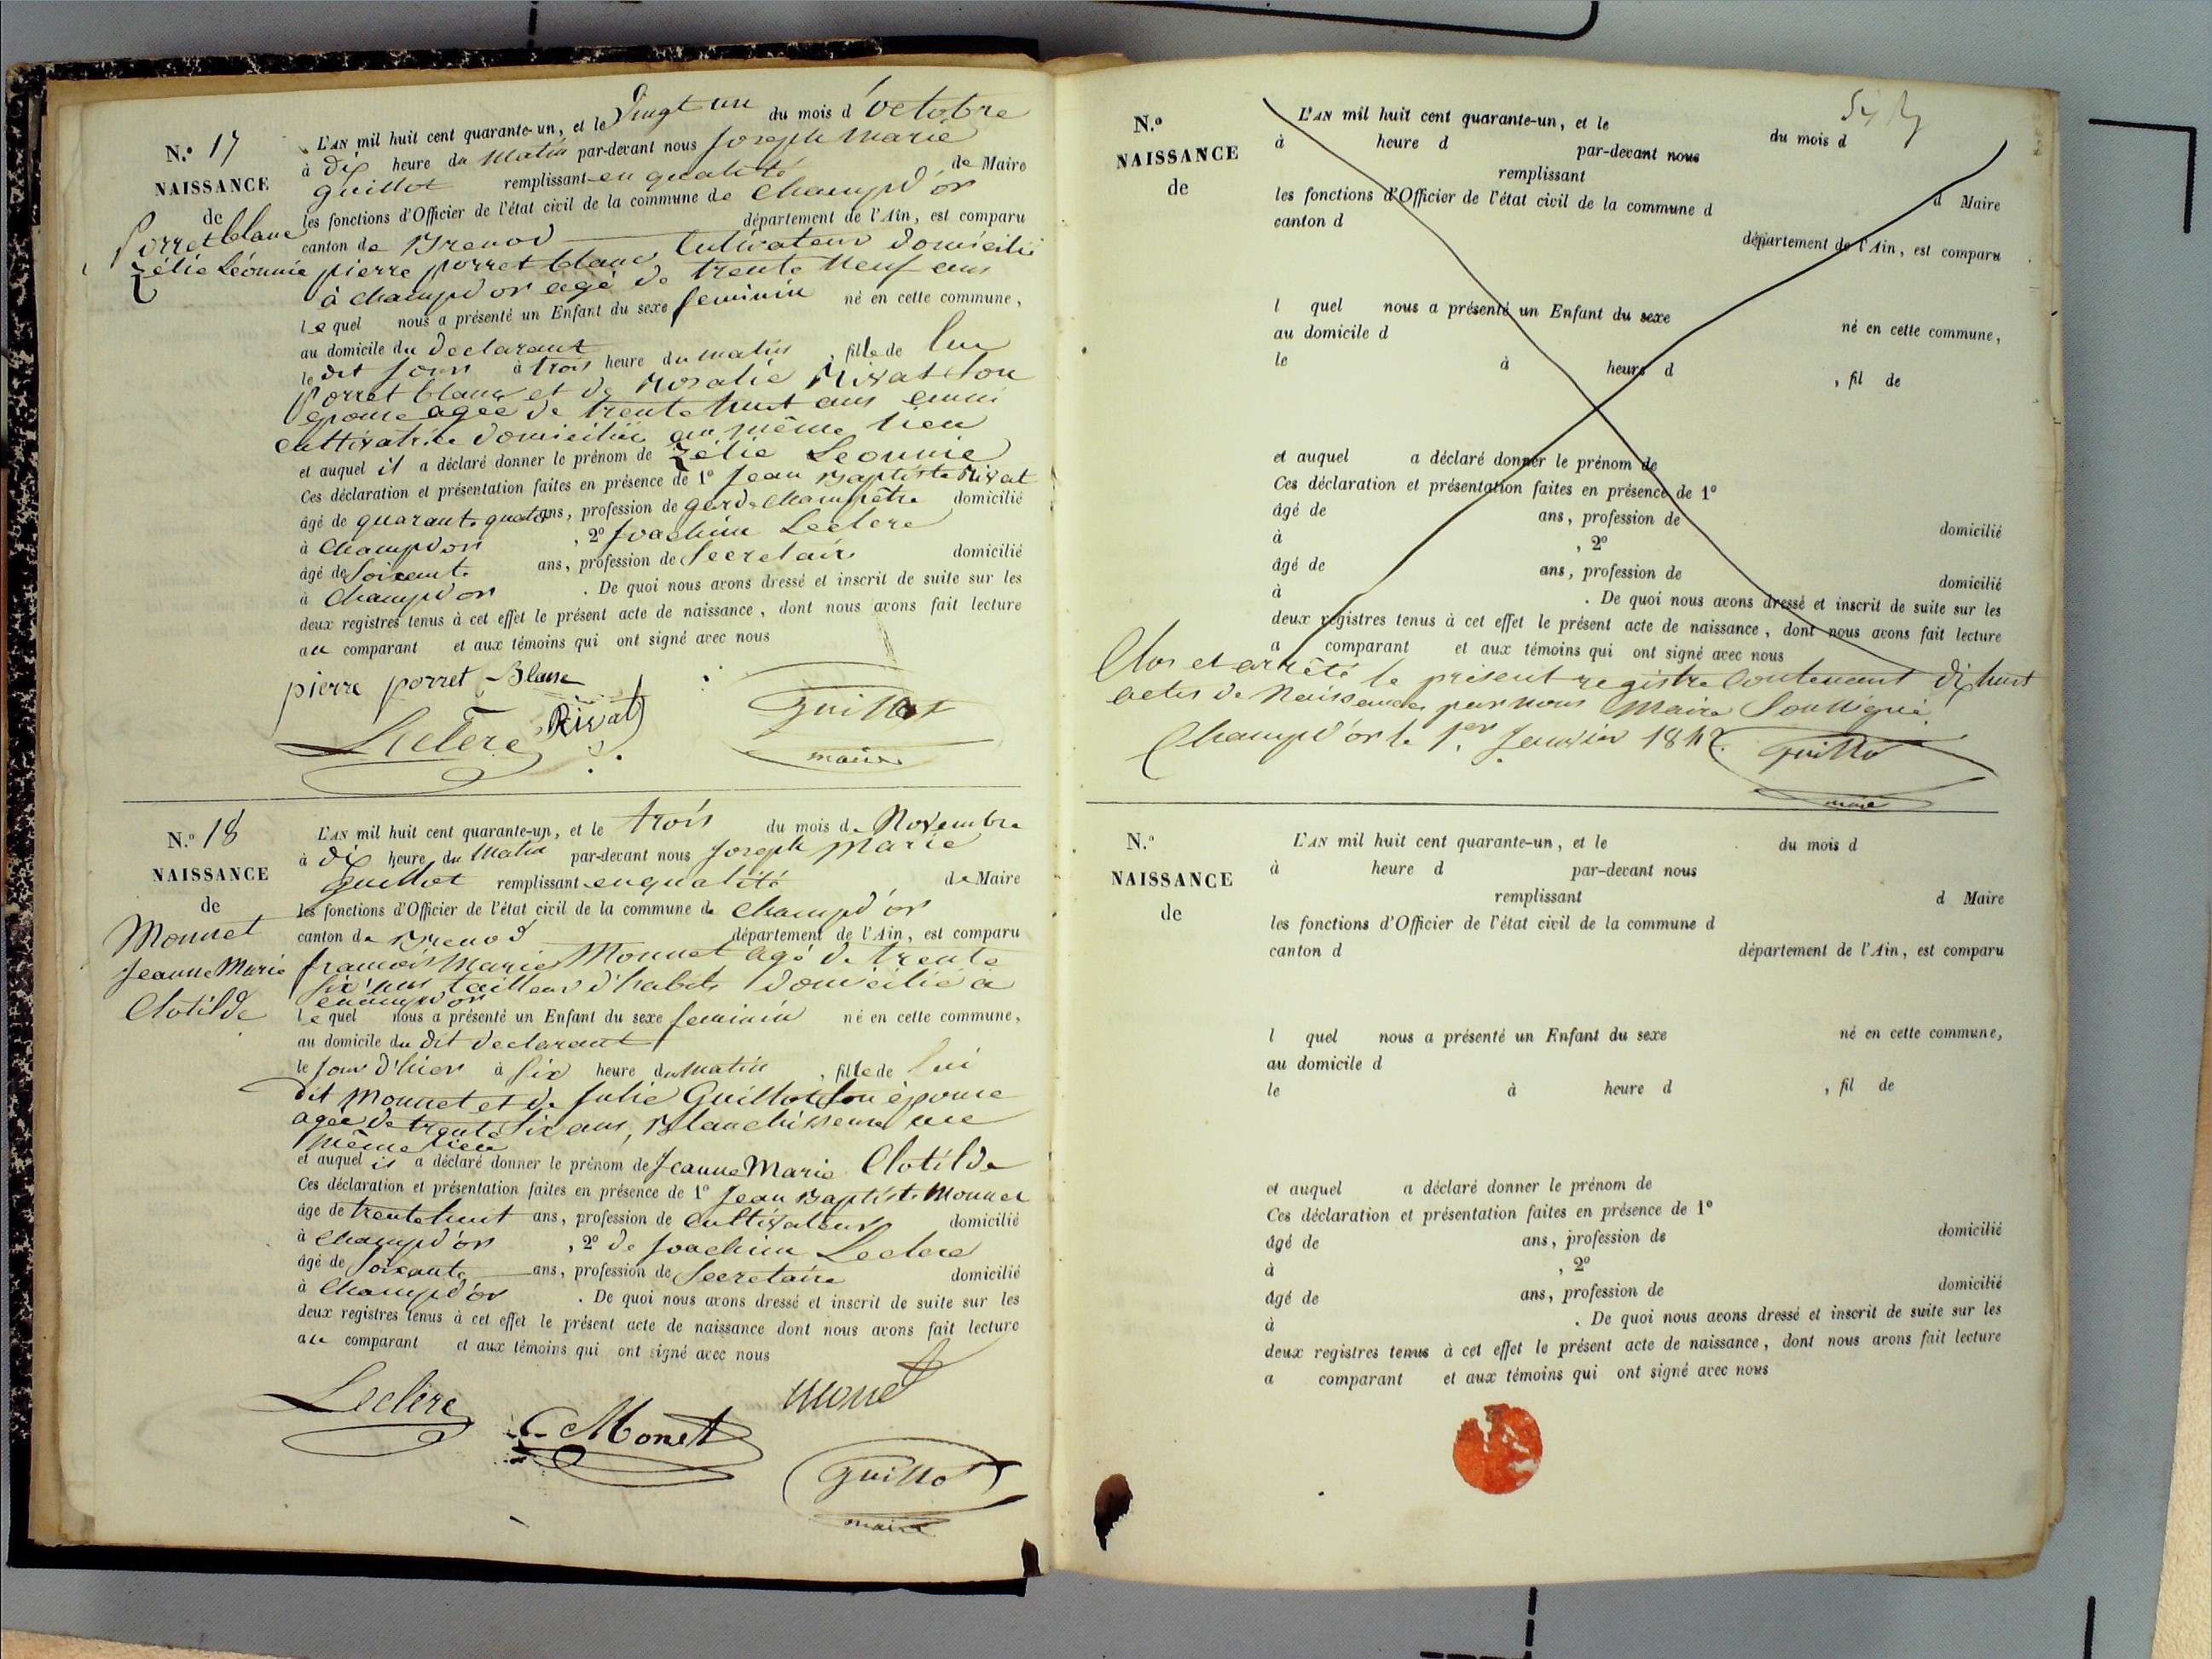 N.º 17
NAISSANCE
de
Porret blanc
Zélie Léonnie
L'AN mil huit cent quarante-un, et le Vingt un du mois d'octobre
à dix heure du Matin par-devant nous Joseph Marie
Guillot remplissant en qualité de Maire
les fonctions d'Officier de l'état civil de la commune de Champd'or
canton de Brenod département de l'Ain, est comparu
pierre porret blanc Cultivateur domicilié
à Champd'or agé de trente neuf ans
lequel nous a présenté un Enfant du sexe feminin né en cette commune,
au domicile du declarant
le dit jour à trois heure du matin, fille de lui
porret blanc et de Rosalie Rivat son
epouse agee de trente huit ans
cultivatrice domiciliée au même lieu
et auquel il a déclaré donner le prénom de Zélie Leonnie
Ces déclaration et présentation faites en présence de 1º Jean Baptiste Rivat
âgé de quarante quatre ans, profession de garde Champêtre domicilié
à Champd'or, 2º Joachim Leclere
âgé de Soixante ans, profession de Secretaire domicilié
à Champd'or. De quoi nous avons dressé et inscrit de suite sur les
deux registres tenus à cet effet le présent acte de naissance, dont nous avons fait lecture
au comparant et aux témoins qui ont signé avec nous
pierre porret Blanc
Leclere Rivat Guillot
maire
N.º 18
NAISSANCE
de
Monnet
Jeanne Marie
Clotilde
L'AN mil huit cent quarante-un, et le trois du mois de Novembre
à dix heure du Matin par-devant nous Joseph Marie
Guillot remplissant en qualité de Maire
les fonctions d'Officier de l'état civil de la commune de Champd'or
canton de Brenod département de l'Ain, est comparu
francois Marie Monnet agé de trente
six ans tailleur d'habits domicilié a
champd'or
lequel nous a présenté un Enfant du sexe feminin né en cette commune,
au domicile du dit declarant
le jour d'hier à six heure du matin, fille de lui
dit Monnet et de Julie Guillot son épouse
agee de trente six ans, Blanchisseuse
même lieu
et auquel il a déclaré donner le prénom de Jeanne Marie Clotilde
Ces déclaration et présentation faites en présence de 1º Jean Baptiste Monnet
âgé de trente huit ans, profession de Cultivateur domicilié
à Champd'or, 2º de Joachim Leclere
âgé de soixante ans, profession de Secretaire domicilié
à Champd'or. De quoi nous avons dressé et inscrit de suite sur les
deux registres tenus à cet effet le présent acte de naissance dont nous avons fait lecture
au comparant et aux témoins qui ont signé avec nous
Leclère Monet monet
Guillot
maire
N.º
NAISSANCE
de
L'AN mil huit cent quarante-un, et le du mois d
à heure d par-devant nous
remplissant d Maire
les fonctions d'Officier de l'état civil de la commune d
canton d département de l'Ain, est comparu
l quel nous a présenté un Enfant du sexe né en cette commune,
au domicile d
le à heure d, fil de
et auquel a déclaré donner le prénom de
Ces déclaration et présentation faites en présence de 1º
âgé de ans, profession de domicilié
à, 2º
âgé de ans, profession de domicilié
à. De quoi nous avons dressé et inscrit de suite sur les
deux registres tenus à cet effet le présent acte de naissance, dont nous avons fait lecture
a comparant et aux témoins qui ont signé avec nous
Clos et arrêté le présent registre Contenant dixhuit
actes de Naissances par nous Maire Soussigné
Champd'or le 1er Janvier 1842. Guillot
maire
N.º
NAISSANCE
de
L'AN mil huit cent quarante-un, et le du mois d
à heure d par-devant nous
remplissant d Maire
les fonctions d'Officier de l'état civil de la commune d
canton d département de l'Ain, est comparu
l quel nous a présenté un Enfant du sexe né en cette commune,
au domicile d
le à heure d, fil de
et auquel a déclaré donner le prénom de
Ces déclaration et présentation faites en présence de 1º
âgé de ans, profession de domicilié
à, 2º
âgé de ans, profession de domicilié
à. De quoi nous avons dressé et inscrit de suite sur les
deux registres tenus à cet effet le présent acte de naissance, dont nous avons fait lecture
a comparant et aux témoins qui ont signé avec nous